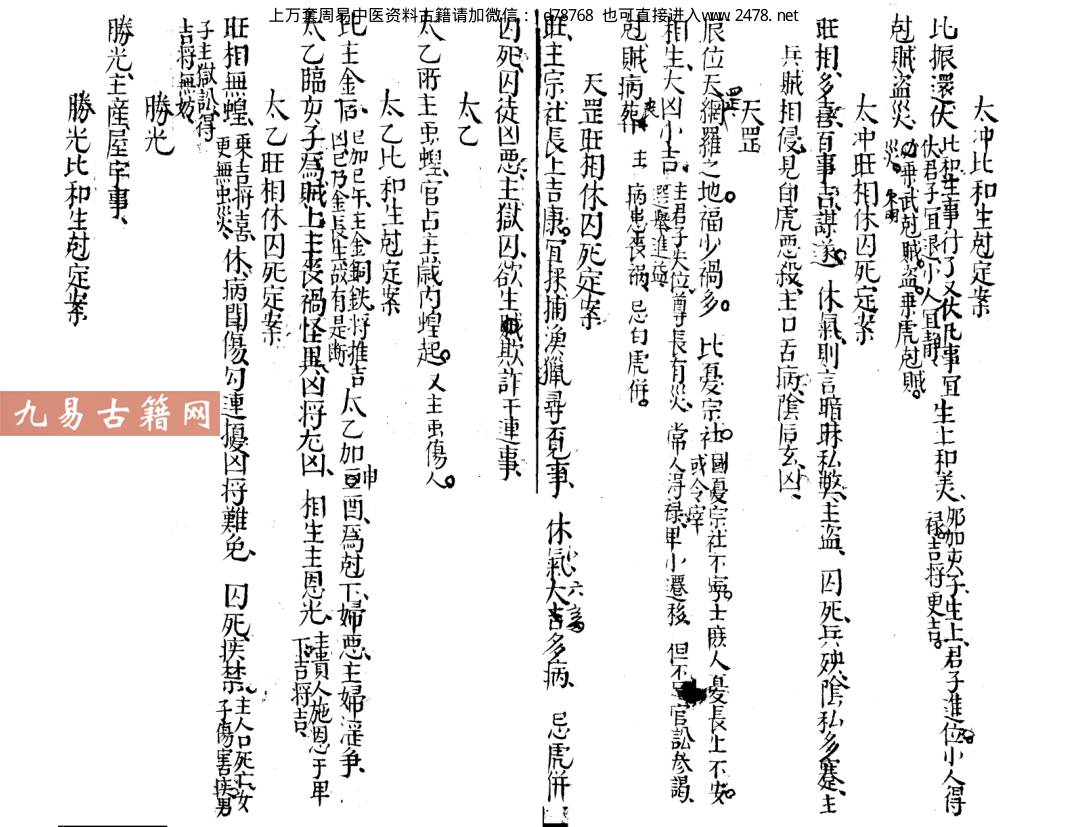 上万套周易中医资料古籍请加微信： d78768 也可直接进入www.2478.net
太冲比和生尅定案
比振還伏 比和生事行了又伏凡事宜
伏君子宜退小人宜静 生上和美 加亥子生上君子進位小人得
禄吉将更吉
尅賊盗災 乗武尅賊盗乗虎尅賊
災
太冲旺相休囚死定案
旺相多喜百事吉謀遂 休氣則言暗昧私弊主盗 囚死兵殃陰私多蹇主
兵賊相侵見卯虎惡殺主口舌病陰后玄凶
天罡
辰位天網羅之地福少禍多 比憂宗社 國憂宗社不寧士庶人憂長上不安
或令宰
相生大凶小吉 主君子失位
選舉進益 尊長有災 常人淂禄卑小遷移 但不 官訟叅謁
尅賊病葬 主 病患喪禍 忌白虎併
喪
天罡旺相休囚死定案
旺主宗社長上吉康宜採捕漁獵尋覓事 休氣大吉多病 忌虎併
囚死囚徒凶悪主獄囚欲生 欺詐干連事
太乙
太乙所主虫蝗官占主歳内蝗起又主虫傷人
太乙比和生尅定案
比主金石 巳加巳午主金銅鉄将推吉
凶巳乃金長生故有是断 太乙加申酉爲尅下婦惡主婦淫争
太乙臨亥子爲賊上主喪禍怪異凶将尤凶 相生主恩光 主貴人施恩于卑
下吉将吉
太乙旺相休囚死定案
旺相無蝗 乗吉将喜
更無虫災 休病聞傷勾連擾凶将難免 囚死疾禁 主人口死亡女
子傷害疾男
子主獄訟得
吉将無妨
勝光
勝光主産屋宇事
勝光比和生尅定案
九易古籍网